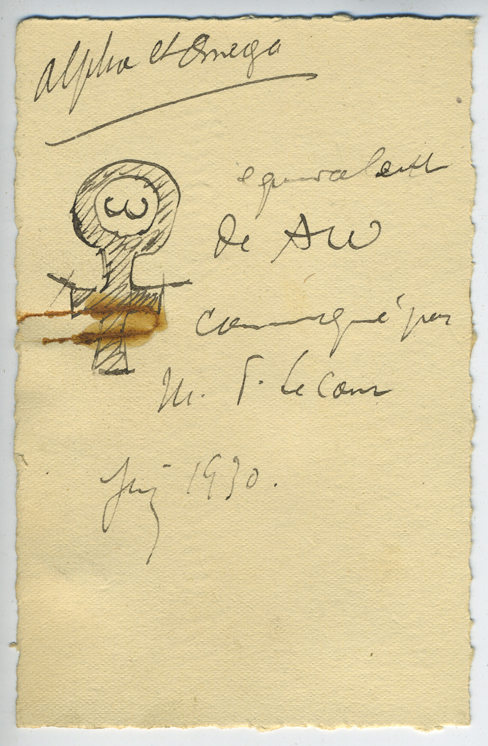 Alpha et Omega
ω
equivalent
de Aω
communiqué par
M. P. Le Cour
Juin 1930.